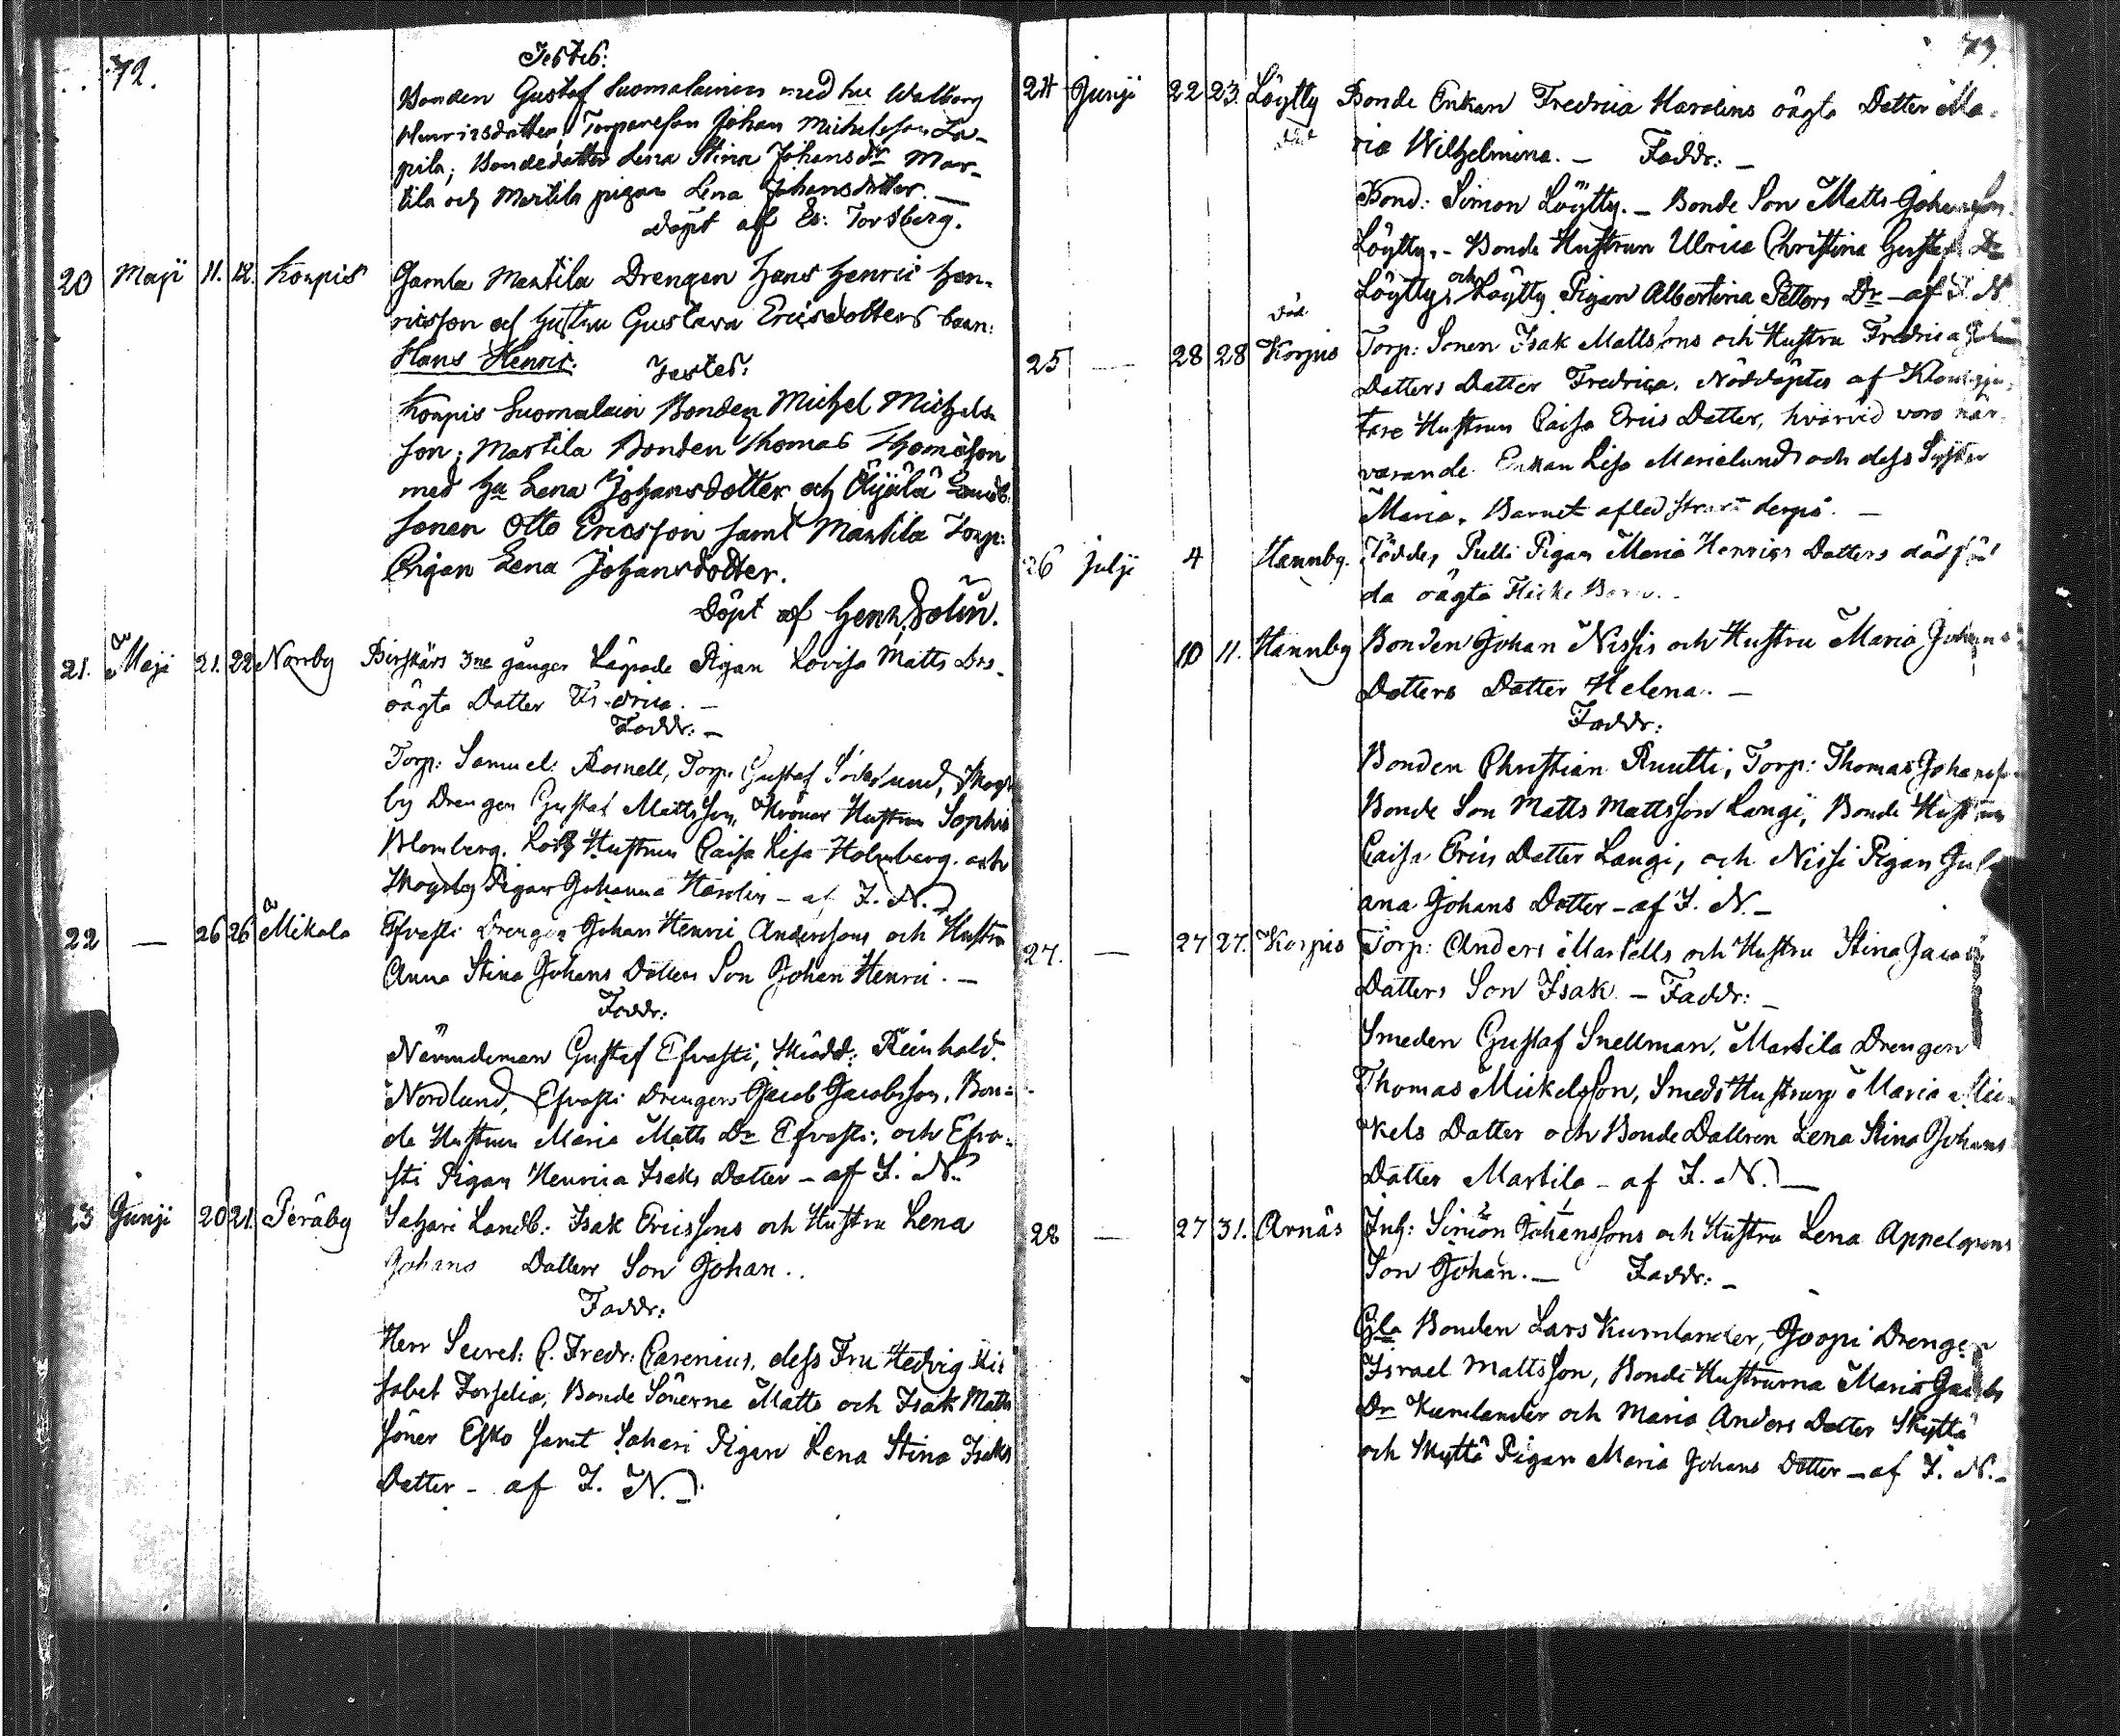 72.
Testes:
Bonden Gustaf Suomalainen med hu Walborg
Henricsdotter, Torparesson Johan Michelsson La-
pila; Bondedotter Lena Stina Johansdr Mar-
tila och Martila pigan Lena Johansdotter. —
döpt af Er: Torsberg.
20 Maji 11. 12. Korpis Gamla Martila Drengen Hans Henric Hen-
ricsson och hustru Gustava Ericsdotters barn:
Hans Henric. Testes:
Korpis Suomalain Bonden Michel Michels-
son; Martila Bonden Thomas Thomasson
med hu Lena Johansdotter och Öijälä Landb:
sonen Otto Ericsson samt Martila Torp:
Pigan Lena Johansdotter.
Döpt af Henr. Solin.
21. Maji 21. 22 Narrby Birskärs 3ne gånger Lägrade Pigan Lovisa Matts Drs
oägta Datter Fredrica. —
Faddr: —
Torp: Samuel Rosnell, Torp: Gustaf Söderlund, Skogs
by Drengen Gustaf Mattsson, Hustrun Sophia
Blomberg, Hustrun Caisa Lisa Holmberg och
Skogsby Pigan Johanna Harolin — af I. N.
22 — 26 26 Mikola Efrasti Drengen Johan Henric Anderssons och Hustru
Anna Stina Johans Datters Son Johan Henric. —
Faddr:
Nämndeman Gustaf Efrasti, Skrädd: Reinhold
Nordlund, Efrasti Drengen Jacob Jacobsson, Bon-
de Hustrun Maria Matts Dr Efrasti, och Efra-
sti Pigan Henrica Isaks Datter — af I. N.
23 Junji 20 21. Peräby Sahari Landb: Isak Ericssons och Hustru Lena
Johans Datters Son Johan..
Faddr:
Herr Secret: C. Fredr: Carenius, dess Fru Hedvig Eli
sabet Forselia, Bonde Sönerne Matts och Isak Matts
söner Esko samt Sahari Pigan Lena Stina Isaks
Datter — af I. N.
73.
24 Junji 22 23. Löytty Bonde Enkan Fredrica Harolins oägta Datter Ma-
död ria Wilhelmina. — Faddr: —
Bond: Simon Löytty. — Bonde Son Matts Johansson
Löytty. — Bonde Hustrun Ulrica Christina Gustaf Dr
Löytty, och Löytty Pigan Albertina Petters Dr — af I. N.
död
25 — 28 28 Korpis Torp: Sonen Isak Mattssons och Hustru Fredrica Johans
Datters Datter Fredrica. Nöddöptes af Klockju-
tare Hustrun Caisa Erics Datter, hvarvid voro när-
varande Enkan Lisa Marielund och dess Syster
Maria. Barnet afled strax derpå. —
26 Julji 4 Hannby. Föddes Pulli Pigan Maria Henrics Datters dödföd
da oägta Flicke Barn. —
10 11. Hannby Bonden Johan Nissis och Hustru Maria Johans
Datters Datter Helena. —
Faddr:
Bonden Christian Ruutti, Torp: Thomas Johansson
Bonde Son Matts Mattsson Langi, Bonde Hustrun
Caisa Erics Datter Langi, och Nissi Pigan Juli
ana Johans Datter — af I. N. —
27. — 27 27. Korpis Torp: Anders Martells och Hustru Stina Jacobs
Datters Son Isak. — Faddr: —
Smeden Gustaf Snellman, Martila Drengen
Thomas Mickelsson, Smeds Hustrun Maria Mic-
kels Datter och Bonde Dattren Lena Stina Johans
Datter Martila — af I. N. —
28 — 27 31. Arnäs Inh: Simon Johanssons och Hustru Lena Appelgrens
Son Johan. — Faddr: —
Gla Bonden Lars Kumlander, Joopi Drengen
Israel Mattsson, Bonde Hustrurna Maria Jacobs
Dr Kumlander och Maria Anders Datter Skyttä
och Skyttä Pigan Maria Johans Datter — af I. N. —